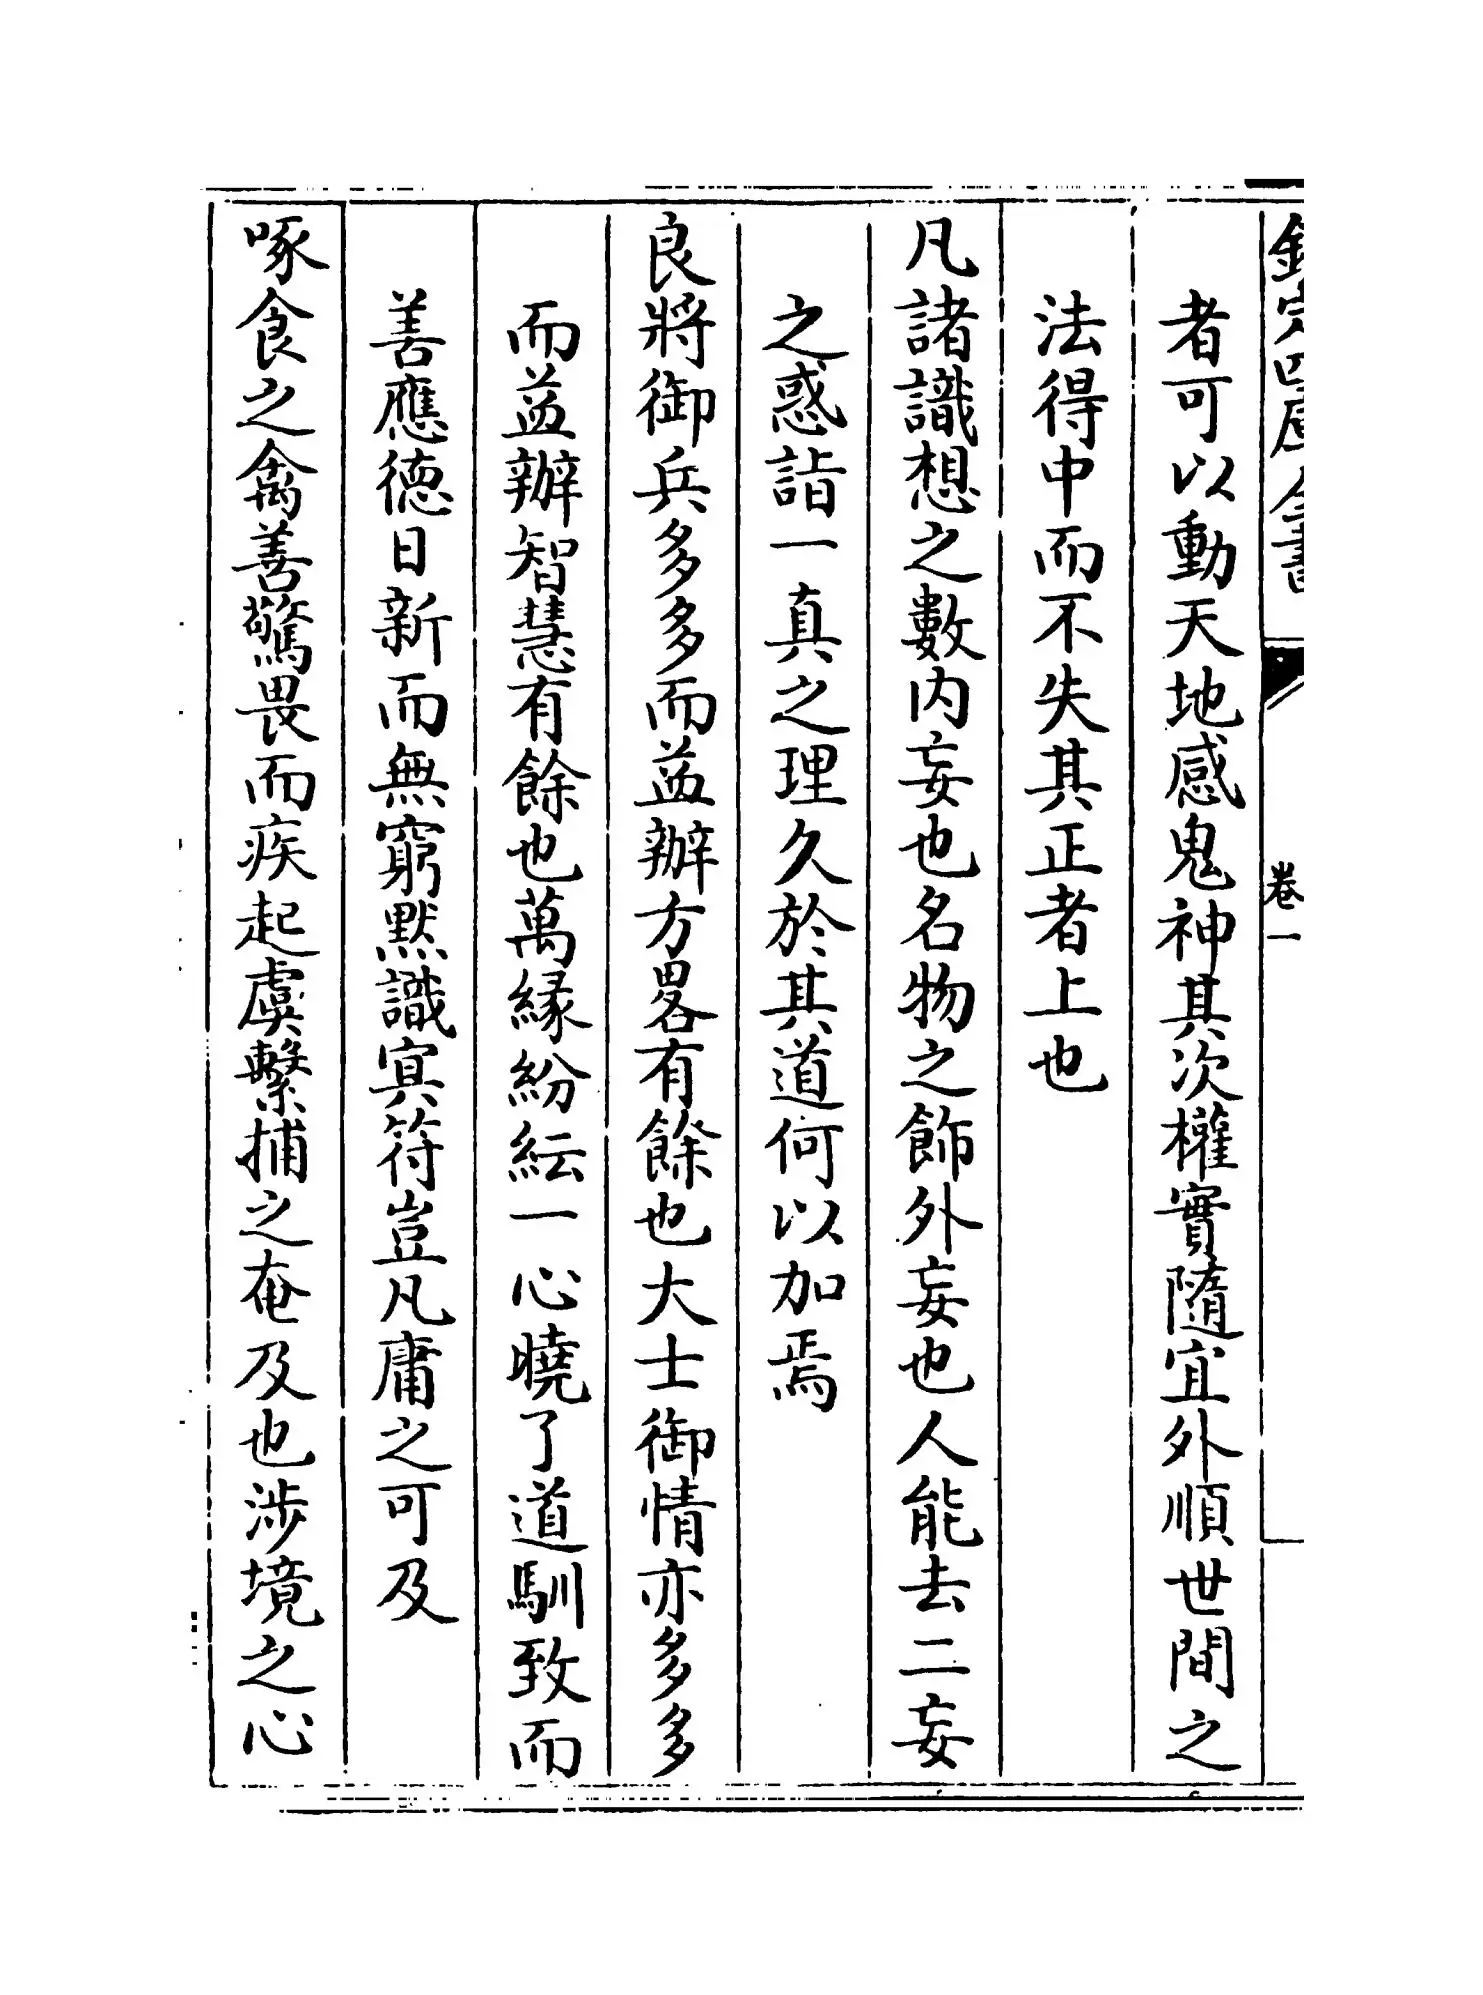 欽定四庫全書
卷一
者可以動天地感鬼神其次權實隨宜外順世間之
法得中而不失其正者上也
凡諸識想之數内妄也名物之飾外妄也人能去二妄
之惑詣一真之理久於其道何以加焉
良將御兵多多而益辦方畧有餘也大士御情亦多多
而益辦智慧有餘也萬緣紛紜一心曉了道馴致而
善應德日新而無窮默識冥符豈凡庸之可及
啄食之禽善驚畏而疾起虞繫捕之奄及也涉境之心